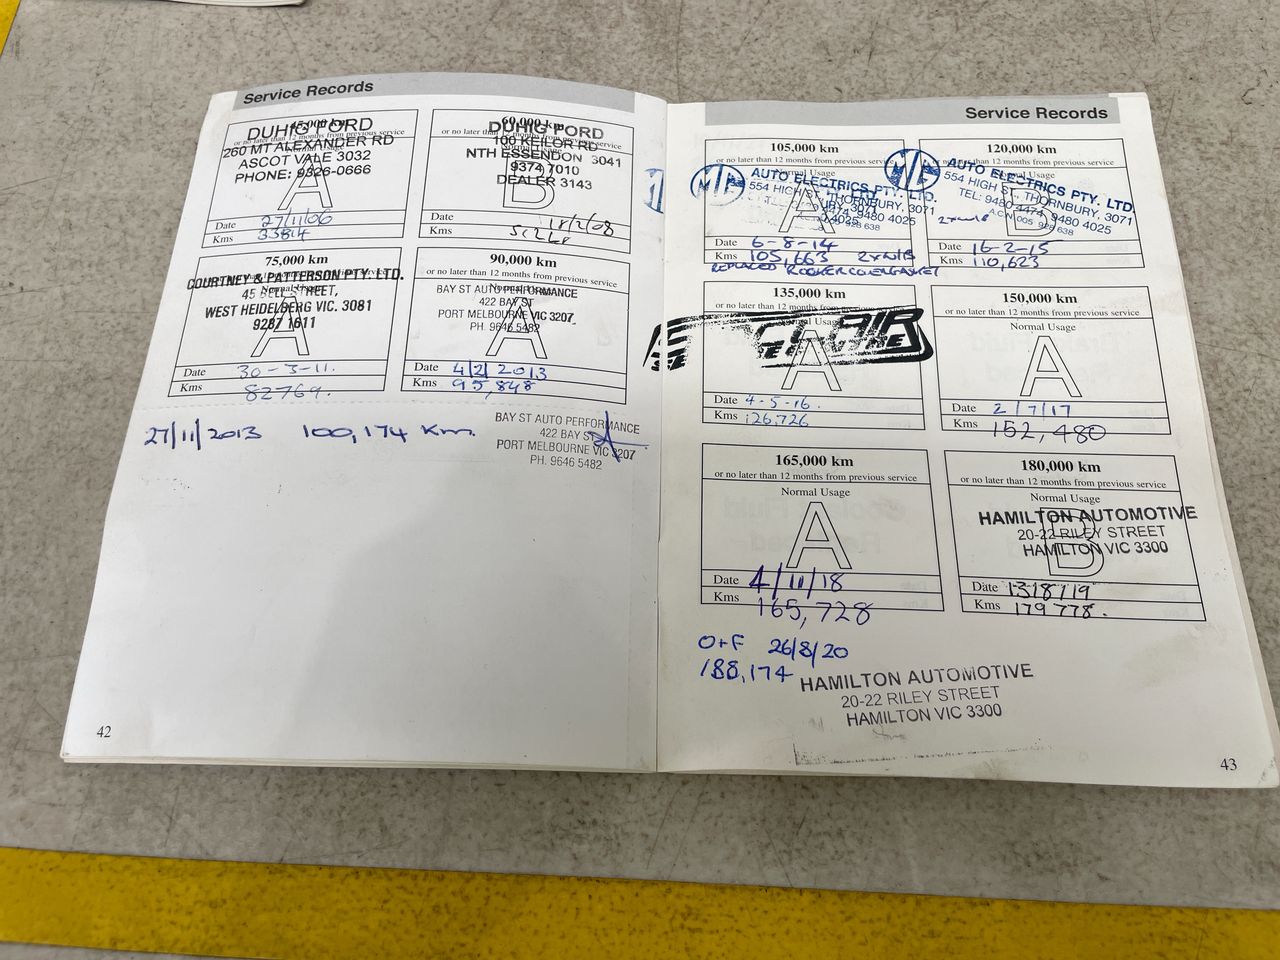 Service Records
45,000 km
or no later than 12 months from previous service
Normal Usage
A
DUHIG FORD
260 MT ALEXANDER RD
ASCOT VALE 3032
PHONE: 9326-0666
Date 27/11/06
Kms 33814
60,000 km
or no later than 12 months from previous service
Normal Usage
B
DUHIG FORD
100 KEILOR RD
NTH ESSENDON 3041
9374 7010
DEALER 3143
Date 18/2/08
Kms
75,000 km
or no later than 12 months from previous service
Normal Usage
A
COURTNEY & PATTERSON PTY. LTD.
45 BELL STREET,
WEST HEIDELBERG VIC. 3081
9287 1611
Date 30-3-11.
Kms 82769.
90,000 km
or no later than 12 months from previous service
Normal Usage
A
BAY ST AUTO PERFORMANCE
422 BAY ST
PORT MELBOURNE VIC 3207
PH. 9646 5482
Date 4/2/2013
Kms 95,848
27/11/2013 100,174 Km.
BAY ST AUTO PERFORMANCE
422 BAY ST
PORT MELBOURNE VIC 3207
PH. 9646 5482
42
Service Records
105,000 km
or no later than 12 months from previous service
Normal Usage
A
AUTO ELECTRICS PTY. LTD.
554 HIGH ST, THORNBURY, 3071
Date 6-8-14
Kms 105,663
REPLACED ROCKER COVER GASKET
120,000 km
or no later than 12 months from previous service
Normal Usage
B
AUTO ELECTRICS PTY. LTD
554 HIGH ST, THORNBURY, 3071
TEL: 9480 4474, 9480 4025
A.C.N 005 928 638
Date 16-2-15
Kms 110,623
135,000 km
or no later than 12 months from previous service
Normal Usage
A
Date 4-5-16.
Kms 126,726
150,000 km
or no later than 12 months from previous service
Normal Usage
A
Date 2/7/17
Kms 152,480
165,000 km
or no later than 12 months from previous service
Normal Usage
A
Date 4/11/18
Kms 165,728
180,000 km
or no later than 12 months from previous service
Normal Usage
B
HAMILTON AUTOMOTIVE
20-22 RILEY STREET
HAMILTON VIC 3300
Date 13/8/19
Kms 179778.
O+F 26/8/20
188,174
HAMILTON AUTOMOTIVE
20-22 RILEY STREET
HAMILTON VIC 3300
43